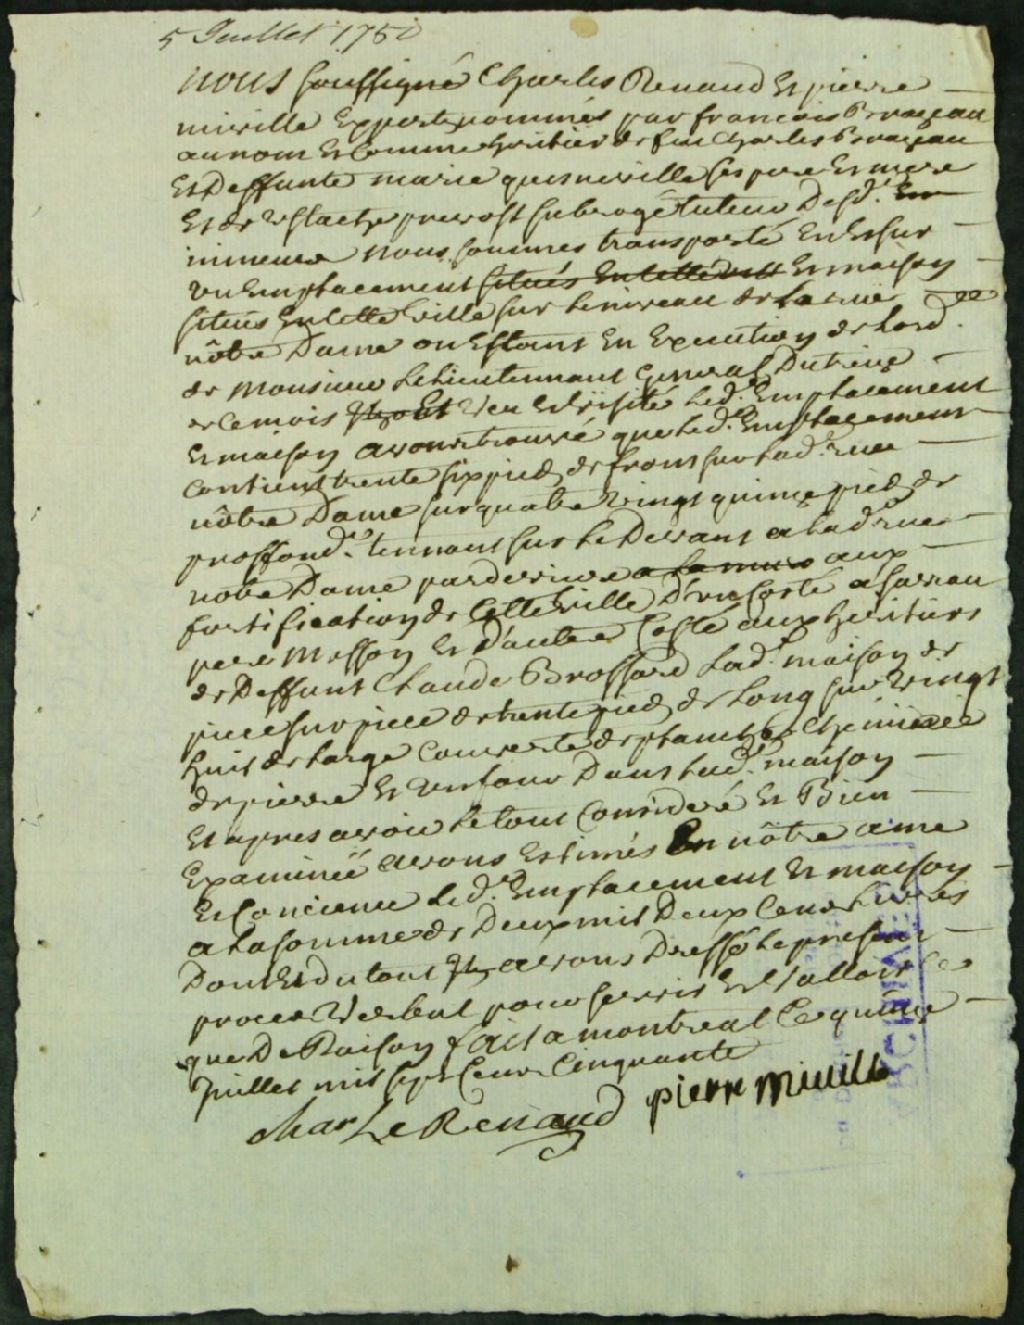 5 Juillet 1750
nous soussigné Charles Renaud Et pierre
miville Expert nommés par francois Brazeau
au nom Et Comme heritier de feu Charles Brazeau
Et Deffunte marie quesneville ses pere Et mere
Et de Ustache prevost subrogé tuteur Desd.
mineurs nous sommes transporté En Et sur
un Emplacement situés En cette ville Et maison
situés En cette ville sur le niveau de la rue
nôtre Dame ou Estant En Execution de Lord.
de Monsieur Le Lieutennant General Du treize
de Ce mois Veu Et Visité Led. Emplacement
Et maison avons trouvé que Led. Emplacement
Contient trente six pied de front sur Lad. rue
nôtre Dame sur quatre Vingt quinze pied de
proffond. tennant sur Le Devant a Lad. rue
notre Dame par deriere a La rue aux
fortification de Cette Ville D'un Costé a
pere Masson Et D'autre Costé aux heritiers
de Deffunt Claude Brossard Lad. maison de
piece sur piece de trente pied de Long sur Vingt
huit de Large Couverte de planche Cheminée
de pierre Et Un four Dans Lad. maison
Et apres avoir Le tout Consideré Et Bien
Examinée avons Estimés En nôtre ame
Et Concience Led. Emplacement Et maison
a La somme de Deux mil Deux Cent Livres
Dont Et du tout avons Dressé Le present
proces Verbal pour servir Et Valloir Ce
que De Raison fait a montreal Ce quinze
Juillet mil sept Cent Cinquante
Charle Renaud pierre miville
ARCHIVES